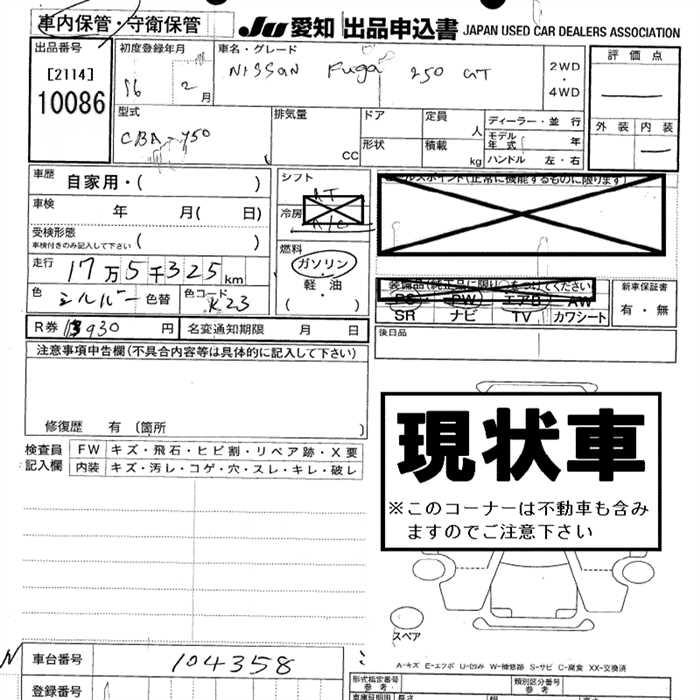 車内保管・守衛保管
JU 愛知 出品申込書 JAPAN USED CAR DEALERS ASSOCIATION
出品番号
[2114]
10086
初度登録年月
16 2月
車名・グレード
NISSAN Fuga 250 GT
2WD
・
4WD
評価点
外装 内装
型式
CBA-Y50
排気量
CC
ドア
形状
定員
人
積載
kg
ディーラー・並行
モデル年式 年
ハンドル 左・右
車歴
自家用・( )
車検
年 月( 日)
受検形態
車検付きのみ記入して下さい ( )
走行
17万5千325km
色 シルバー 色替 色コード K23
R券 930円
名変通知期限 月 日
シフト
AT
冷房
A/C
燃料
ガソリン
・
軽油
( )
セールスポイント(正常に機能するものに限ります)
装備品(純正品に限り○をつけてください)
PS・PW・エアB・AW
SR ナビ TV カワシート
新車保証書
有・無
後日品
注意事項申告欄(不具合内容等は具体的に記入して下さい)
修復歴 有 〔箇所 〕
検査員
記入欄
FW キズ・飛石・ヒビ割・リペア跡・X要
内装 キズ・汚レ・コゲ・穴・スレ・キレ・破レ
現状車
※このコーナーは不動車も含み
ますのでご注意下さい
スペア
A-キズ E-エクボ U-凹み W-補修跡 S-サビ C-腐食 XX-交換済
N
車台番号
104358
登録番号
形式指定番号
参考
類別区分番号
参考
車庫証明用
長さ